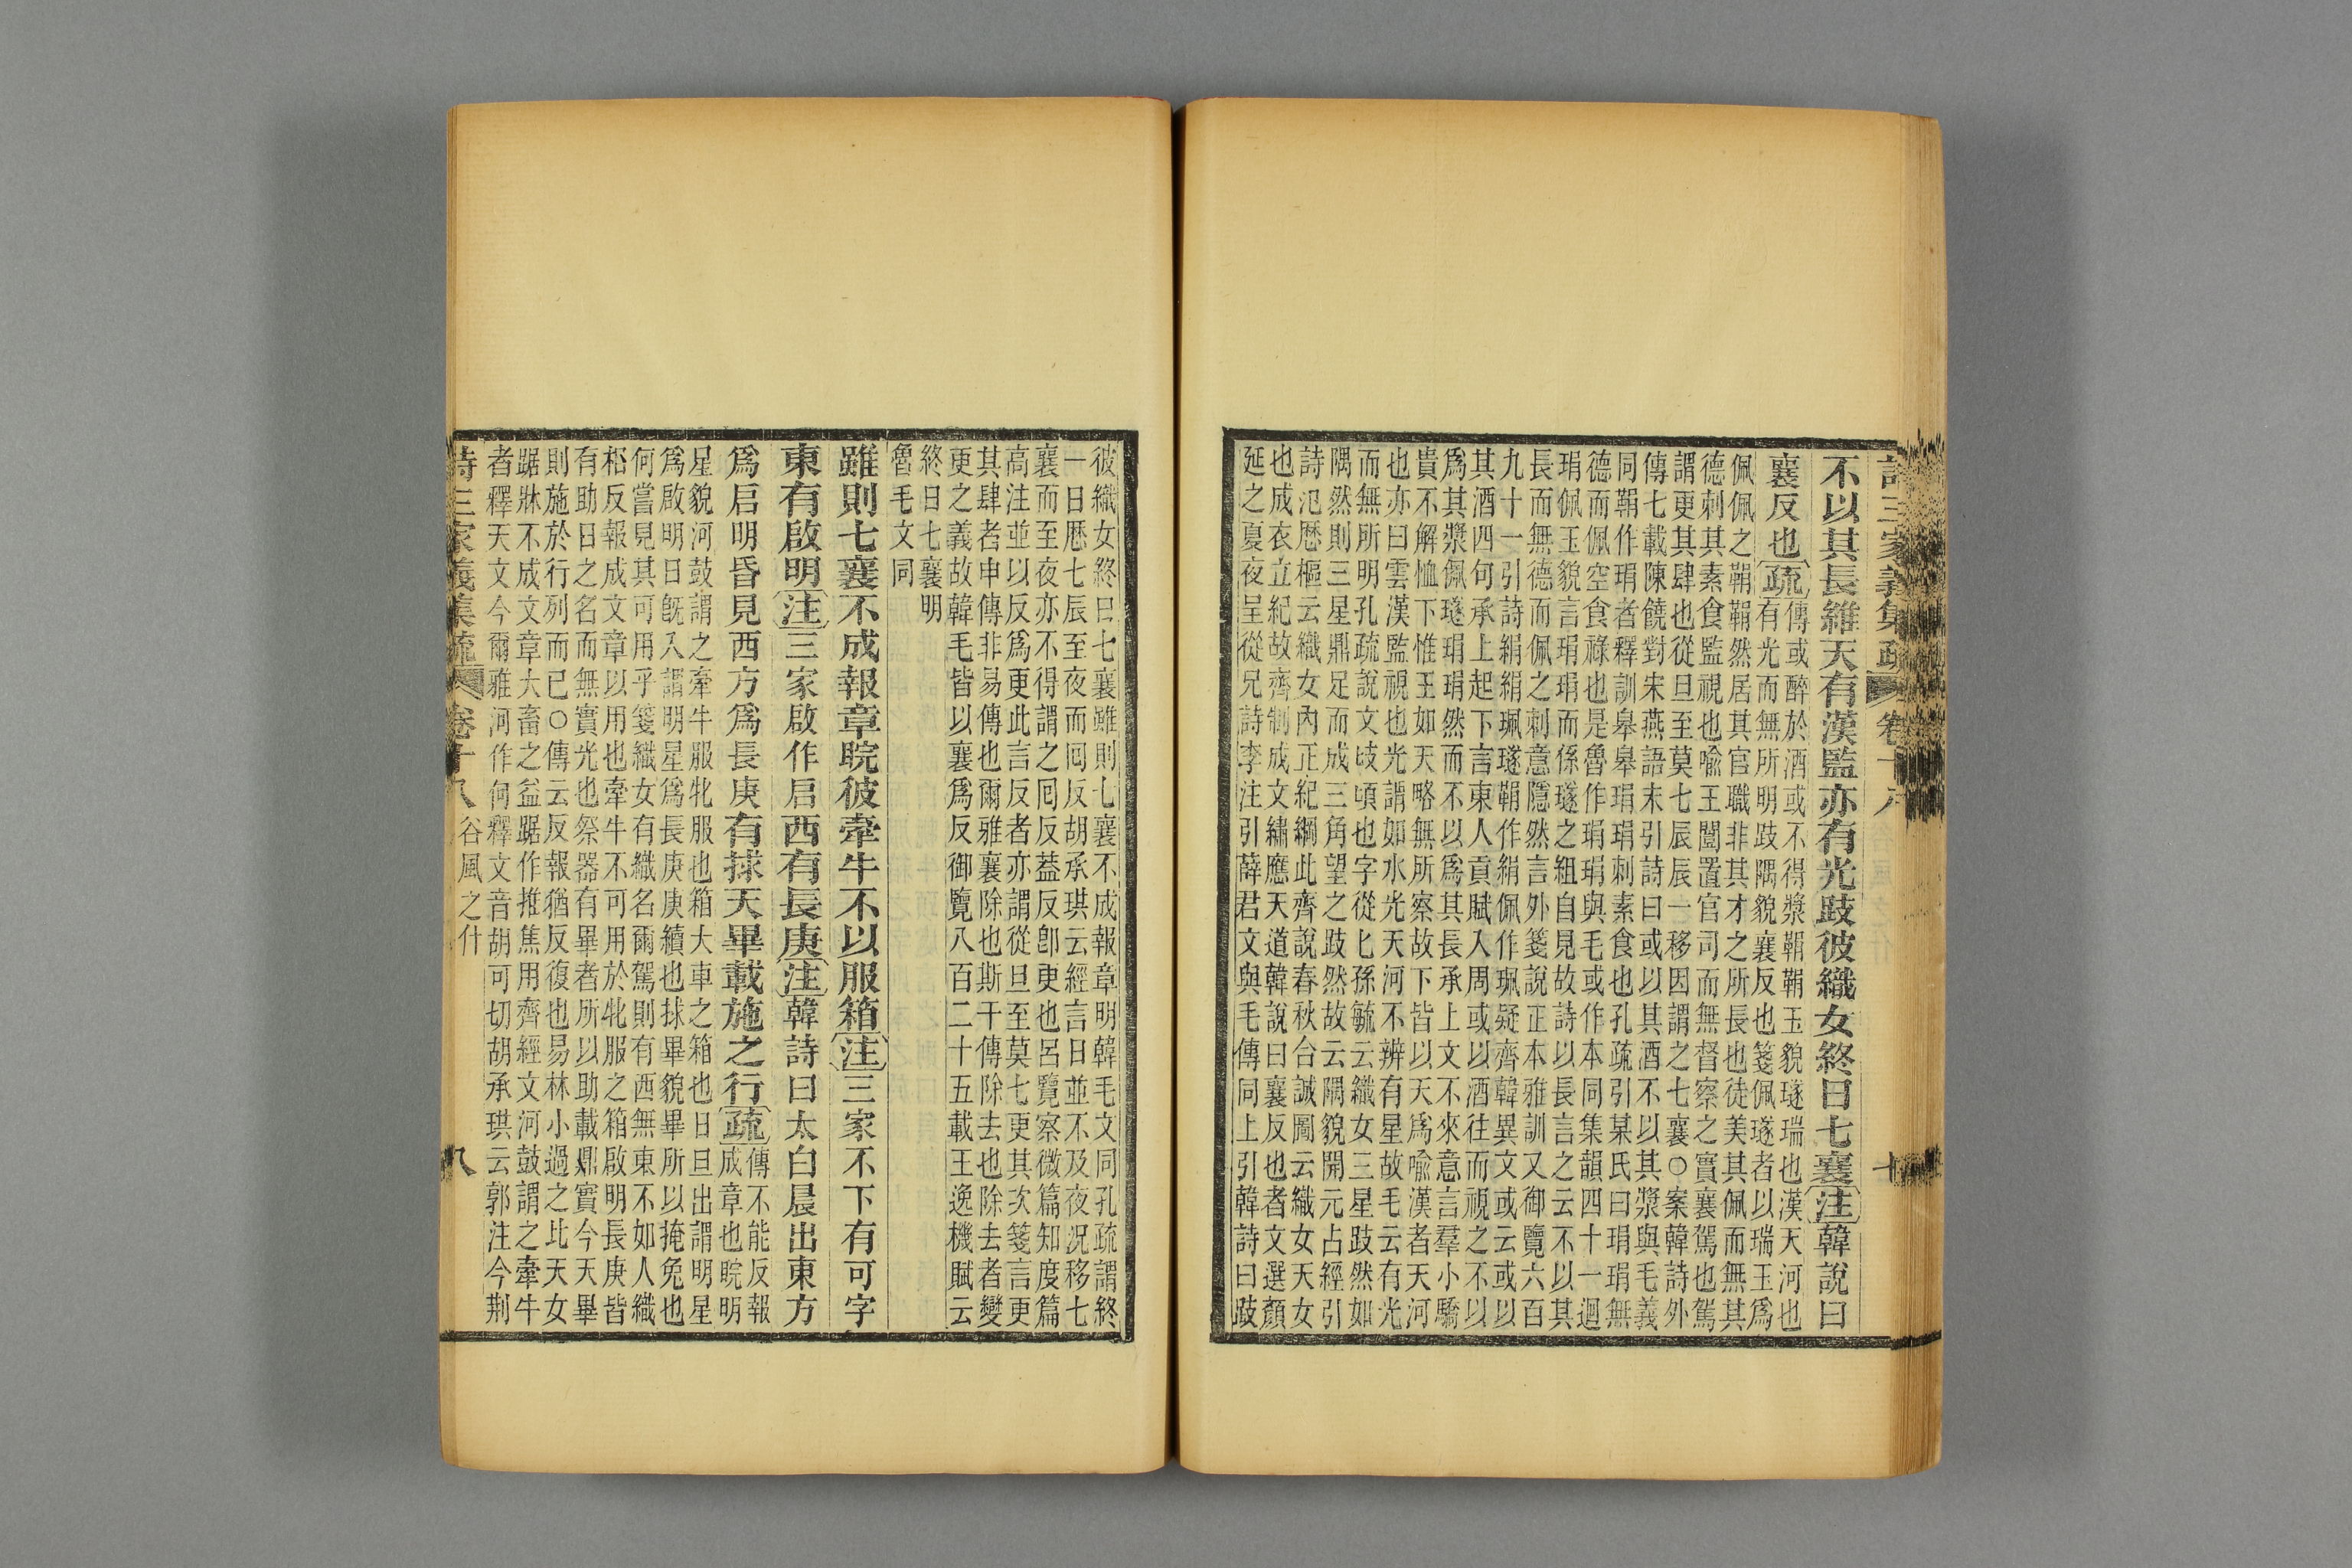 詩三家義集疏 卷十八 七
不以其長維天有漢監亦有光跂彼織女終日七襄注韓說曰
襄反也疏
傳或醉於酒或不得漿鞙鞙玉貌璲瑞也漢天河也
有光而無所明跂隅貌襄反也箋佩璲者以瑞玉爲
佩佩之鞙鞙然居其官職非其才之所長也徒美其佩而無其
德刺其素食監視也喻王闓置官司而無督察之實襄駕也駕
謂更其肆也從旦至莫七辰辰一移因謂之七襄○案韓詩外
傳七載陳饒對宋燕語末引詩曰或以其酒不以其漿與毛義
同鞙作琄者釋訓皋皋琄琄刺素食也孔疏引某氏曰琄琄無
德而佩空食祿也是魯作琄琄與毛或作本同集韻四十一迥
琄佩玉貌言琄琄而係璲之組自見故詩以長言之云不以其
長而無德而佩之刺意隱然言外箋說正本雅訓又御覽六百
九十一引詩絹絹珮璲鞙作絹佩作珮疑齊韓異文或云或以
其酒四句承上起下言東人貢賦入周或以酒往而視之不以
爲其漿佩璲琄琄然而不以爲其長承上文不來意言羣小驕
貴不解恤下惟王如天略無所察故下皆以天爲喻漢者天河
也亦曰雲漢監視也光謂如水光天河不辨有星故毛云有光
而無所明孔疏說文歧頃也字從匕孫毓云織女三星跂然如
隅然則三星鼎足而成三角望之跂然故云隅貌開元占經引
詩氾厯樞云織女內正紀綱此齊說春秋合誠圖云織女天女
也成衣立紀故齊制成文繡應天道韓說曰襄反也者文選顏
延之夏夜呈從兄詩李注引薛君文與毛傳同上引韓詩曰跂
彼織女終日七襄雖則七襄不成報章明韓毛文同孔疏謂終
一日厯七辰至夜而囘反胡承珙云經言日並不及夜况移七
襄而至夜亦不得謂之囘反蓋反卽更也呂覽察微篇知度篇
高注並以反爲更此言反者亦謂從旦至莫七更其次箋言更
其肆者申傳非易傳也爾雅襄除也斯干傳除去也除去者變
更之義故韓毛皆以襄爲反御覽八百二十五載王逸機賦云
終日七襄明
魯毛文同
雖則七襄不成報章睆彼牽牛不以服箱注三家不下有可字
東有啟明注三家啟作启西有長庚注韓詩曰太白晨出東方
爲启明昏見西方爲長庚有捄天畢載施之行疏
傳不能反報
成章也睆明
星貌河鼓謂之牽牛服牝服也箱大車之箱也日旦出謂明星
爲啟明日旣入謂明星爲長庚庚續也捄畢貌畢所以掩兔也
何嘗見其可用乎箋織女有織名爾駕則有西無東不如人織
梠反報成文章以用也牽牛不可用於牝服之箱啟明長庚皆
有助日之名而無實光也祭器有畢者所以助載鼎實今天畢
則施於行列而已○傳云反報猶反復也易林小過之比天女
踞牀不成文章大畜之益踞作推焦用齊經文河鼓謂之牽牛
者釋天文今爾雅河作何釋文音胡可切胡承珙云郭注今荆
詩三家義集疏 卷十八 谷風之什 八